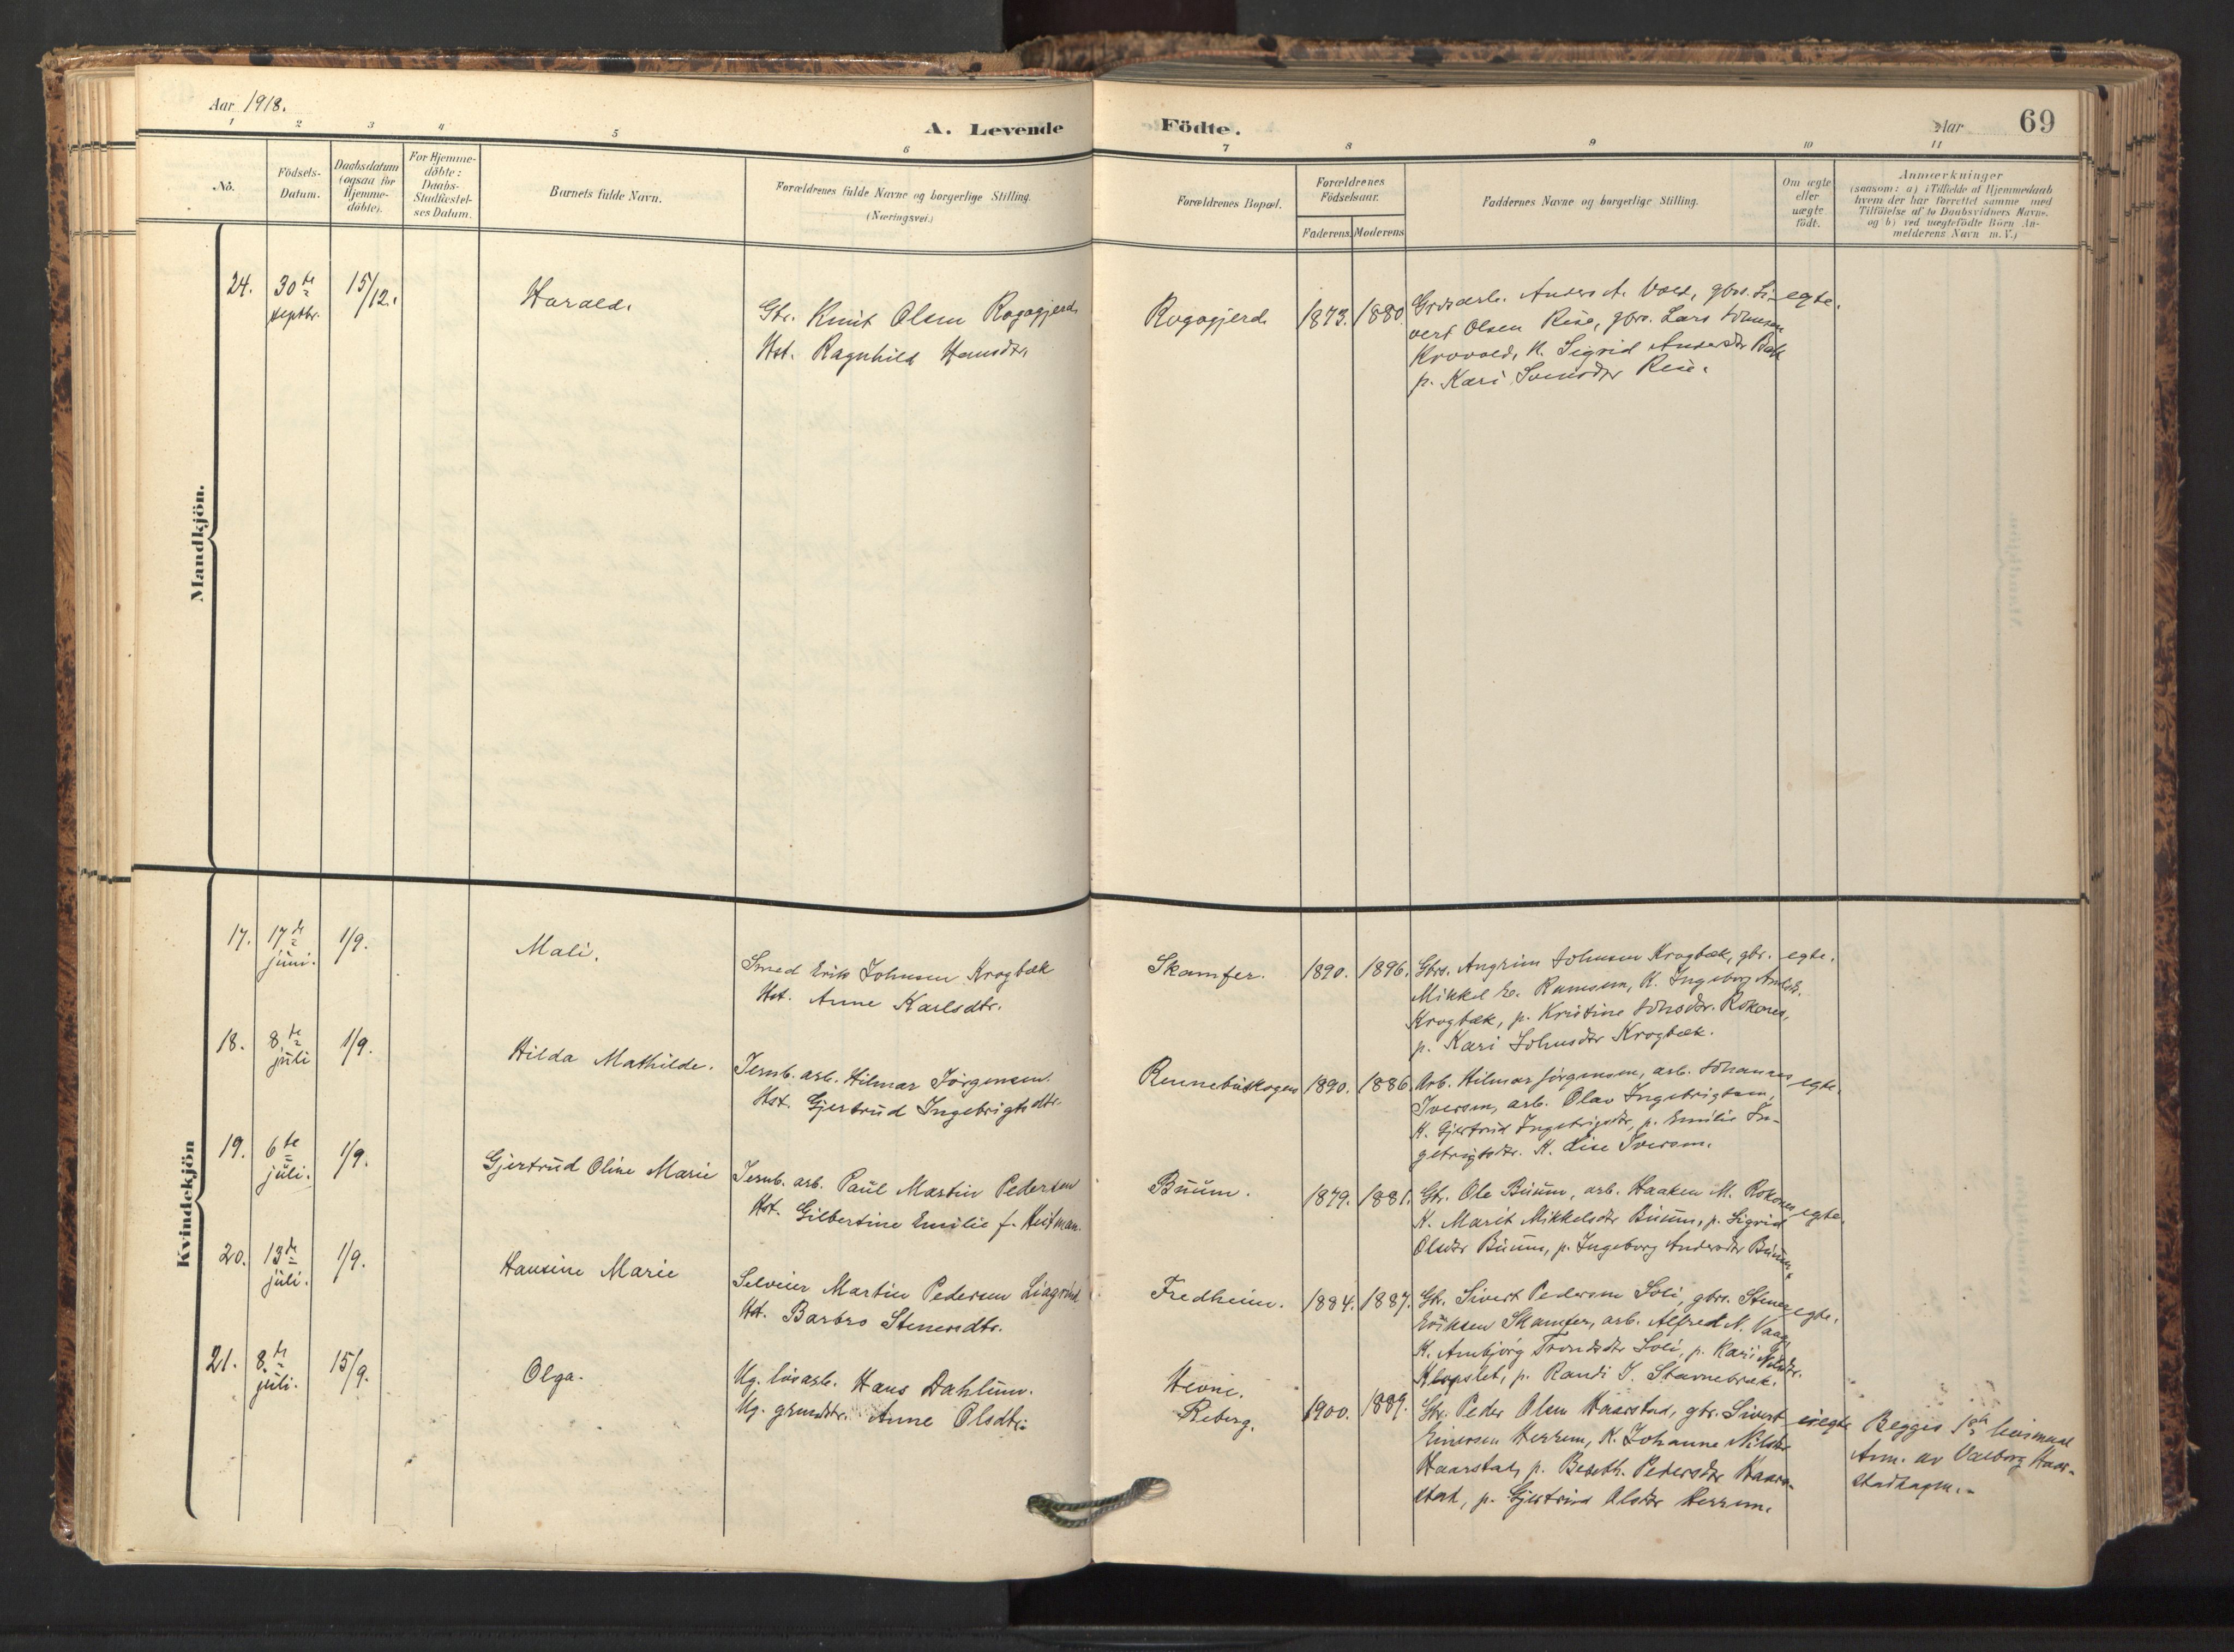 Aar 1918.
A. Levende Födte.
Aar 69
1 2 3 4 5 6 7 8 9 10 11
No.
Födsels-
Datum.
Daabsdatum
(ogsaa for
Hjemme-
döbte).
For Hjemme-
döbte:
Daabs-
Stadfæstel-
ses Datum.
Barnets fulde Navn.
Forældrenes fulde Navne og borgerlige Stilling.
(Næringsvei.)
Forældrenes Bopæl.
Forældrenes
Födselsaar.
Faderens. Moderens
Faddernes Navne og borgerlige Stilling.
Om ægte
eller
uægte
födt.
Anmærkninger
(saasom: a) i Tilfælde af Hjemmedaab
hvem der har forrettet samme med
Tilföielse af to Daabsvidners Navne.
og b) ved uægtefödte Börn An-
melderens Navn m. V.)
Mandkjön.
24.
30te
septbr.
15/12.
Harald.
Gbr. Knut Olsen Rogogjerd
Hst. Ragnhild Hansdtr.
Rogogjerd
1873. 1880.
Grdsarb. Anders A. Vold, gbrs. Si-
vert Olsen Rise, gbrs. Lars Johnsen
Krovold, K. Sigrid Andersdtr Bak
p. Kari Svensdtr Rise.
egte.
Kvindekjön
17.
17de
juni.
1/9.
Mali.
Smed Erik Johnsen Krogbæk
Hst. Anne Karlsdtr.
Skamfer.
1890. 1896.
Gbrs. Angrim Johnsen Krogbæk, gbr.
Mikkel E. Ramsem, K. Ingeborg Arntsdtr.
Krogbæk, p. Kristine Johsdtr. Rokones,
p. Kari Johnsdtr Krogbæk.
egte.
18.
8te
juli
1/9.
Hilda Mathilde.
Jernb. arb. Hilmar Jörgensen.
Hst. Gjertrud Ingebrigtsdtr.
Rennebuskogen
1890. 1886.
Arb. Hilmar Jörgensen, arb. Johannes
Iversen, arb. Olav Ingebrigtsen,
K. Gjertrud Ingebrigtsdtr, p. Emilie In-
gebrigtsdtr. K. Lise Iversen.
egte.
19.
6te
juli.
1/9.
Gjertrud Oline Marie
Jernb. arb. Paul Martin Pedersen
Hst. Gilbertine Emilie f. Heitman.
Buum.
1879. 1881.
Gbr. Ole Buum, arb. Haaken M. Rokones
K. Marit Mikkelsdtr Buum, p. Sigrid
Olsdtr Buum, p. Ingeborg Andersdtr Buum.
egte.
20.
13de
juli.
1/9.
Hansine Marie
Selveier Martin Pedersen Liagrind.
Hst. Barbro Stenersdtr.
Fredheim.
1884. 1887.
Gbr. Sivert Pedersen Soli, gbrs. Stener
Eriksen Skamfer, arb. Alfred N. Vaag
K. Ambjörg Trondsdtr Soli, p. Kari Nilsdtr.
Klopslet, p. Randi J. Stavnebrek.
egte.
21.
8de
juli.
15/9.
Olga.
Ug. lösarb. Hans Dahlum.
Ug. grundstr. Anne Olsdtr.
Hevne.
Reberg.
1900. 1889.
Gbr. Peder Olsen Haarstad, gbr. Sivert
Einersen Herrem, K. Johanne Nilsdtr
Haarstad, p. Beseth. Pedersdtr Haar-
stad, p. Gjertrud Olsdtr Herrem.
uegte
Begges 1ste leiermaal
Anm. av Valborg Haar-
stadhagen.